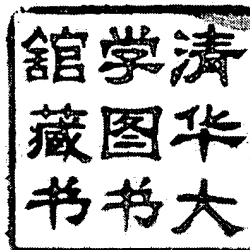 清华大
学图书
舘藏书